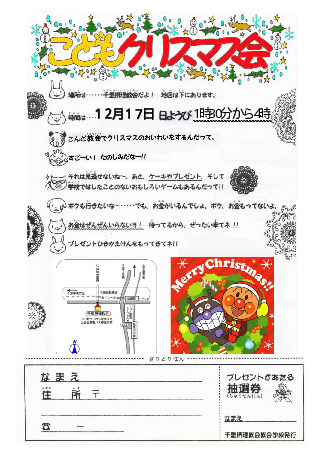 こどもクリスマス会
場所は・・・・・・・千里摂理教会だよ！ 地図は下にあります。
時間は・・・・12月17日 日ようび 1時30分から4時
こんど教会でクリスマスのおいわいをするんだって。
すごーい！ たのしみだなー!!
それは見逃せないね～。あと、ケーキやプレゼント、そして
学校ではしたことのないおもしろいゲームもあるんだって!!
ボクも行きたいな～・・・でも、お金がいるんでしょ。ボク、お金もってないよ。
お金はぜんぜんいらないヨ！ 待ってるから、ぜったい来てネ!!
プレゼントひきかえけんをもってきてネ!!
MerryChristmas!!
きりとりせん
なまえ
住所 〒
☎ ー
プレゼントがあたる
抽選券
(ちゅうせんけん)
なまえ
千里摂理教会教会学校発行